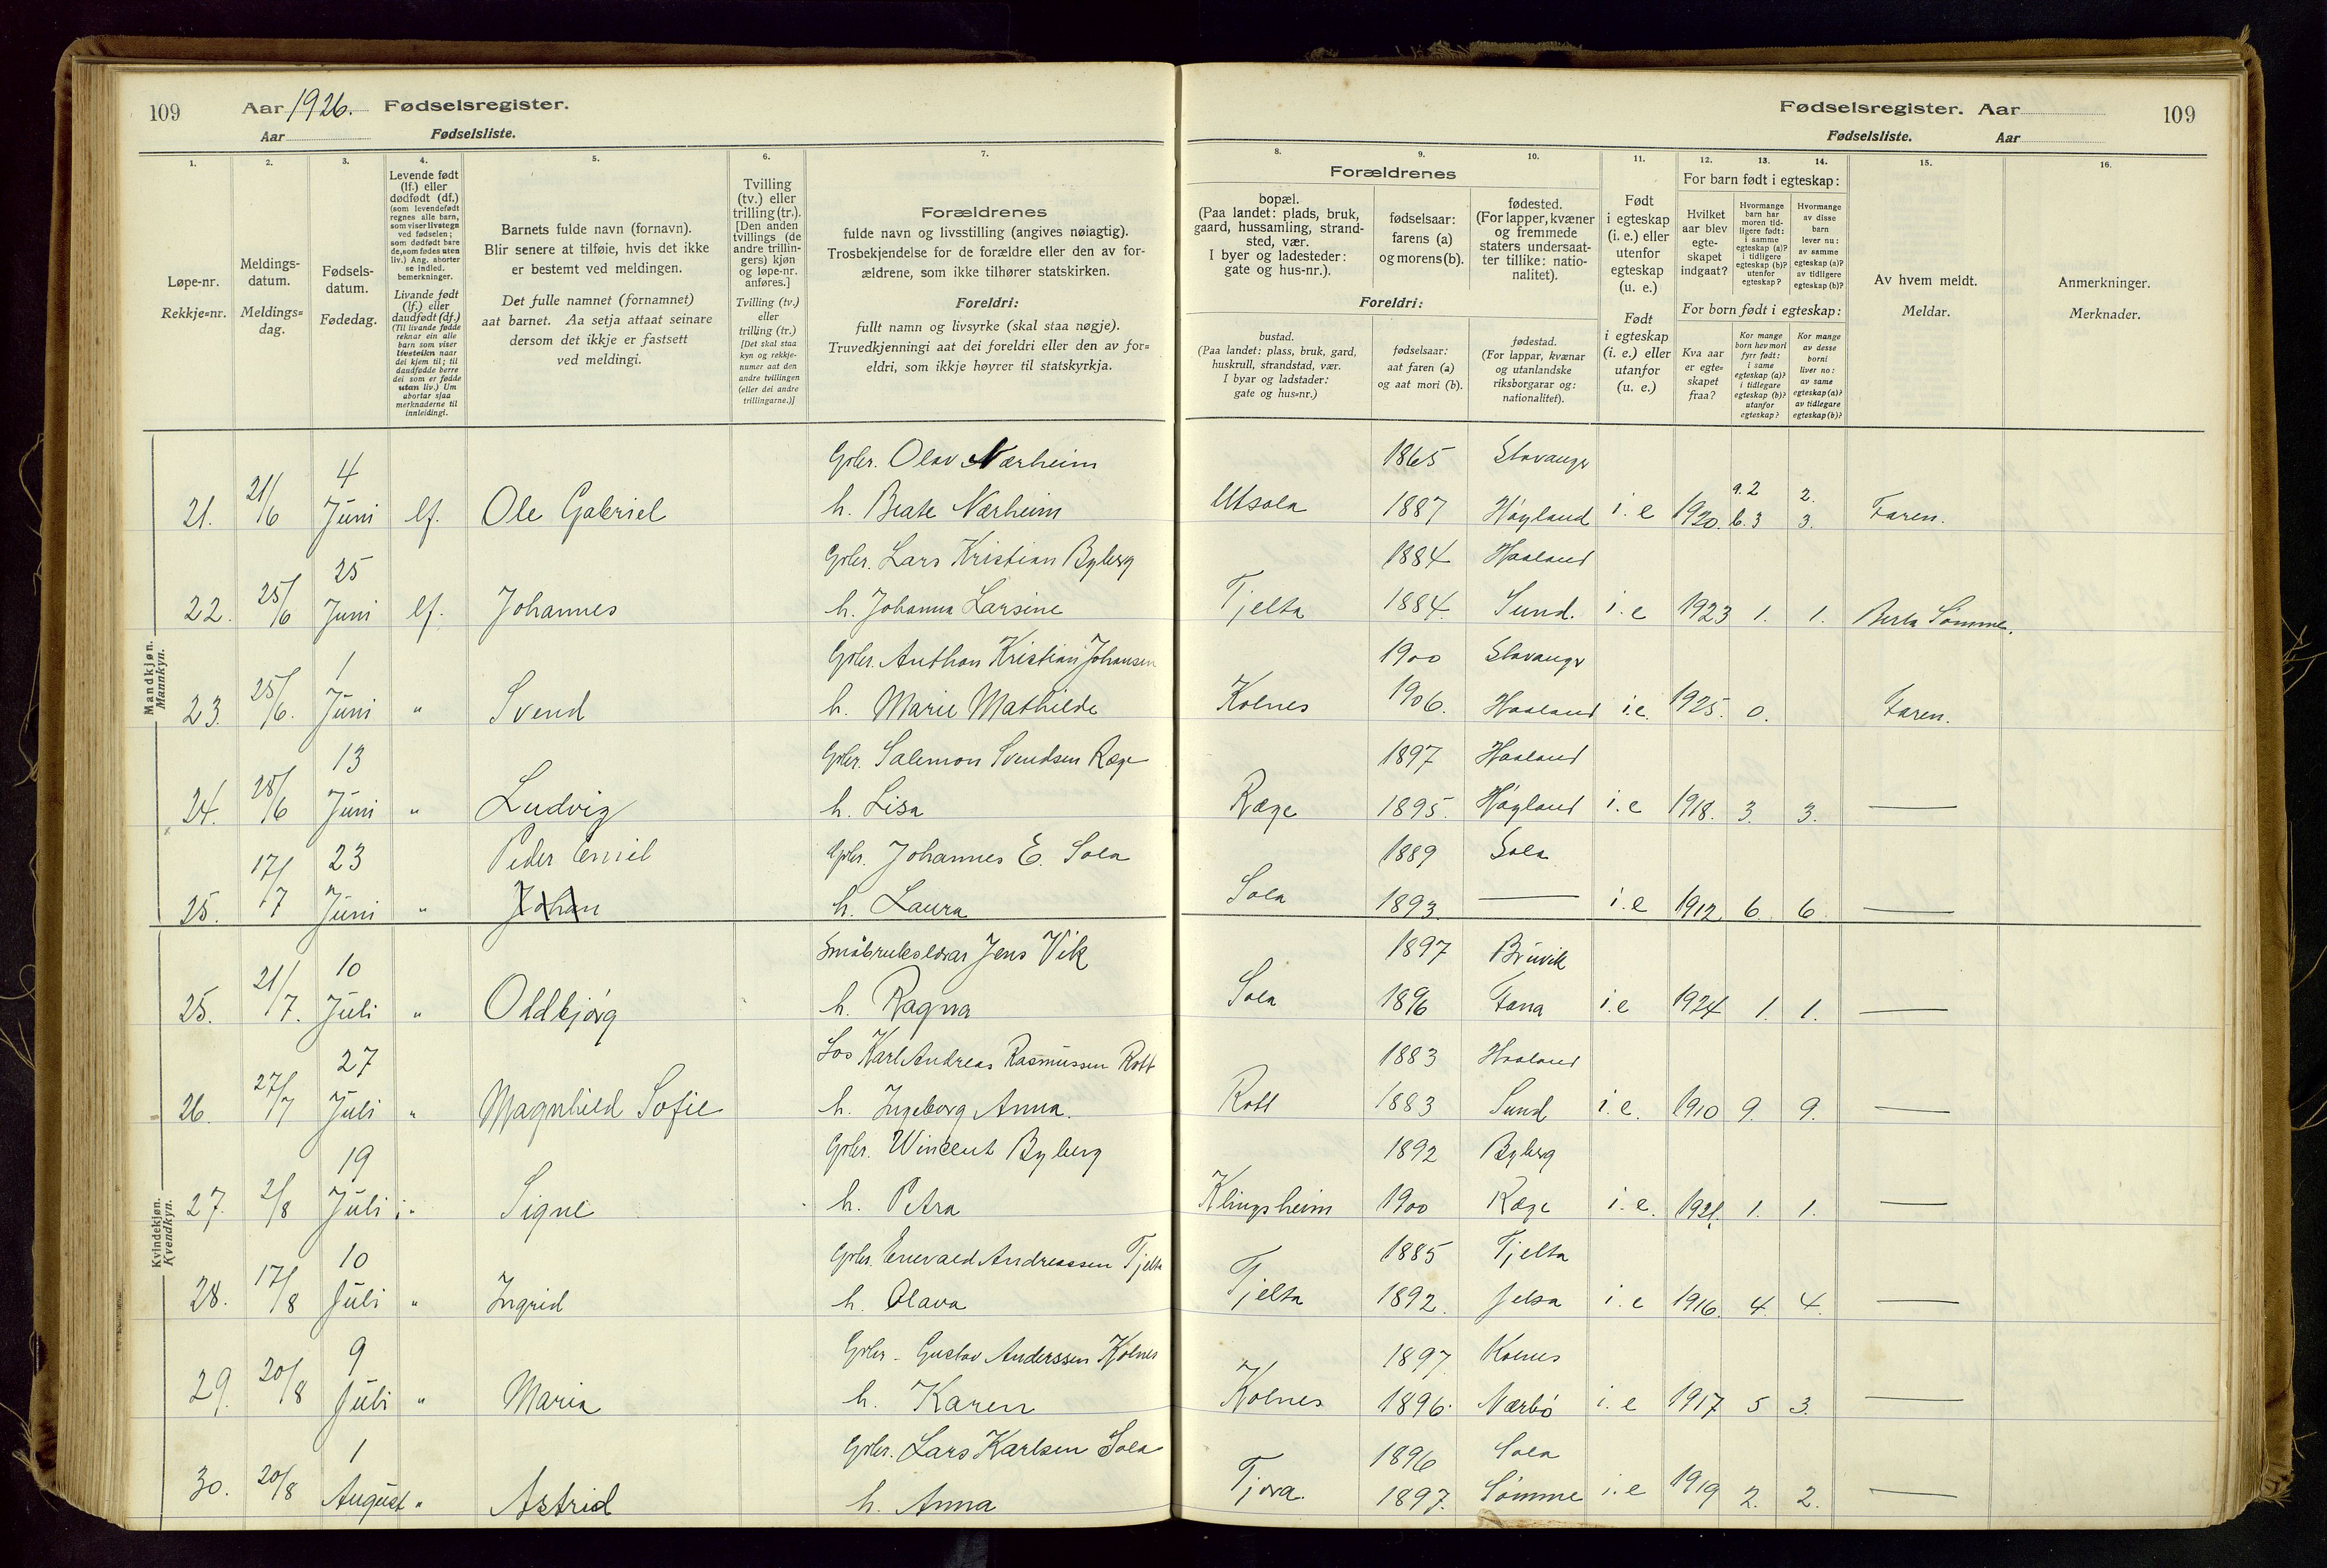 109 Aar 1926. Fødselsregister.
Aar Fødselsliste.
Fødselsregister. Aar 109
Fødselsliste. Aar
1. 2. 3. 4. 5. 6. 7. 8. 9. 10. 11. 12. 13. 14. 15. 16.
Løpe-nr.
Rekkje=nr.
Meldings-
datum.
Meldings=
dag.
Fødsels-
datum.
Fødedag.
Levende født
(lf.) eller
dødfødt (df.)
(som levendefødt
regnes alle barn,
som viser livstegn
ved fødselen;
som dødfødt bare
de, som fødes uten
liv.) Ang. aborter
se indled.
bemerkninger.
Livande født
(lf.) eller
daudfødt (df.)
(Til livande fødde
reknar ein alle
barn som viser
livsteikn naar
dei kjem til; til
daudfødde berre
dei som er fødde
utan liv.) Um
abortar sjaa
merknaderne til
innleidingi.
Barnets fulde navn (fornavn).
Blir senere at tilføie, hvis det ikke
er bestemt ved meldingen.
Det fulle namnet (fornamnet)
aat barnet. Aa setja attaat seinare
dersom det ikkje er fastsett
ved meldingi.
Tvilling
(tv.) eller
trilling (tr.).
[Den anden
tvillings (de
andre trillin-
gers) kjøn
og løpe-nr.
anføres.]
Tvilling (tv.)
eller
trilling (tr.)
[Det skal staa
kyn og rekkje-
numer aat den
andre tvillingen
(eller dei andre
trillingarne.)]
Forældrenes
fulde navn og livsstilling (angives nøiagtig).
Trosbekjendelse for de forældre eller den av for-
ældrene, som ikke tilhører statskirken.
Foreldri:
fullt namn og livsyrke (skal staa nøgje).
Truvedkjenningi aat dei foreldri eller den av for=
eldri, som ikkje høyrer til statskyrkja.
Forældrenes
bopæl.
(Paa landet: plads, bruk,
gaard, hussamling, strand-
sted, vær.
I byer og ladesteder:
gate og hus-nr.).
fødselsaar:
farens (a)
og morens (b).
fødested.
(For lapper, kvæner
og fremmede
staters undersaat-
ter tillike: natio-
nalitet).
Foreldri:
bustad.
(Paa landet: plass, bruk, gard,
huskrull, strandstad, vær.
I byar og ladstader:
gate og hus=nr.)
fødselsaar:
aat faren (a)
og aat mori (b).
fødestad.
(For lappar, kvænar
og utanlandske
riksborgarar og:
nationalitet).
Født
i egteskap
(i. e.) eller
utenfor
egteskap
(u. e.)
Født
i egteskap
(i. e.) eller
utanfor
(u. e.)
For barn født i egteskap:
Hvilket
aar blev
egte-
skapet
indgaat?
Hvormange
barn har
moren tid-
ligere født:
i samme
egteskap (a)?
i tidligere
egteskap (b)?
utenfor
egteskap?
Hvormange
av disse
barn
lever nu:
av samme
egteskap (a)?
av tidligere
egteskap (b)?
For born født i egteskap:
Kva aar
er egte=
skapet
fraa?
Kor mange
born hev mori
fyrr født:
i same
egteskap (a)?
i tidlegare
egteskap (b)?
utanfor
egteskap?
Kor mange
av desse
borni
liver no:
av same
egteskap (a)?
av tidlegare
egteskap (b)?
Av hvem meldt.
Meldar.
Anmerkninger.
Merknader.
Mandkjøn.
Mannkyn.
4 Gbr. Olav Nærheim 1865 Stavanger
21. 21/6 Juni lf. Ole Gabriel h. Beate Nærheim Utsola 1887 Høyland i. e 1920. a. 2 b. 3 2. 3. Faren.
25 Gbr. Lars Kristian Byberg 1884 Haaland
22. 25/6 Juni lf. Johannes h. Johanna Larsine Tjelta 1884. Sund. i. e 1923 1. 1. Berta Sømme.
1 Gbr. Anthon Kristian Johansen 1900 Stavanger
23. 25/6. Juni " Svend h. Marie Mathilde Kolnes 1906. Haaland i.e. 1925. 0. Faren.
13 Gbr. Salemon Svendsen Ræge 1897 Haaland
24. 28/6 Juni " Ludvig h. Lisa Ræge 1895. Høyland i. e 1918. 3. 3. —
23 Peder Emil Gbr. Johannes E. Sola 1889 Sola
25. 17/7 Juni " Johan h. Laura Sola 1893. — i. e 1912 6. 6 —
Kvindekjøn.
Kvendkyn.
10 Småbrukslærar Jens Vik 1897 Bruvik
25. 21/7. Juli " Oldbjørg h. Ragna Sola 1896 Fana i. e 1924 1. 1. —
27 Los Karl Andreas Rasmussen Rott 1883 Haaland
26. 27/7 Juli " Magnhild Sofie h. Ingeborg Anna. Rott 1883 Sund i. e. 1910 9. 9. —
19 Gbr. Wincent Byberg 1892 Byberg
27. 2/8 Juli " Signe h. Petra Klingsheim 1900 Ræge i. e. 1921. 1. 1. —
10 Gbr. Enevald Andreassen Tjelta 1885 Tjelta
28. 17/8 Juli " Ingrid h. Olava Tjelta 1892. Jelsa i. e 1916. 4. 4. —
9 Gbr. Gustav Anderssen Kolnes 1897 Kolnes
29. 20/8 Juli " Maria h. Karen Kolnes 1896. Nærbø i. e 1917 5 3. —
1 Gbr. Lars Karlsen Sola 1896 Sola
30. 20/8 August " Astrid h. Anna Tjora. 1897. Sømme i. e 1919 2. 2. —